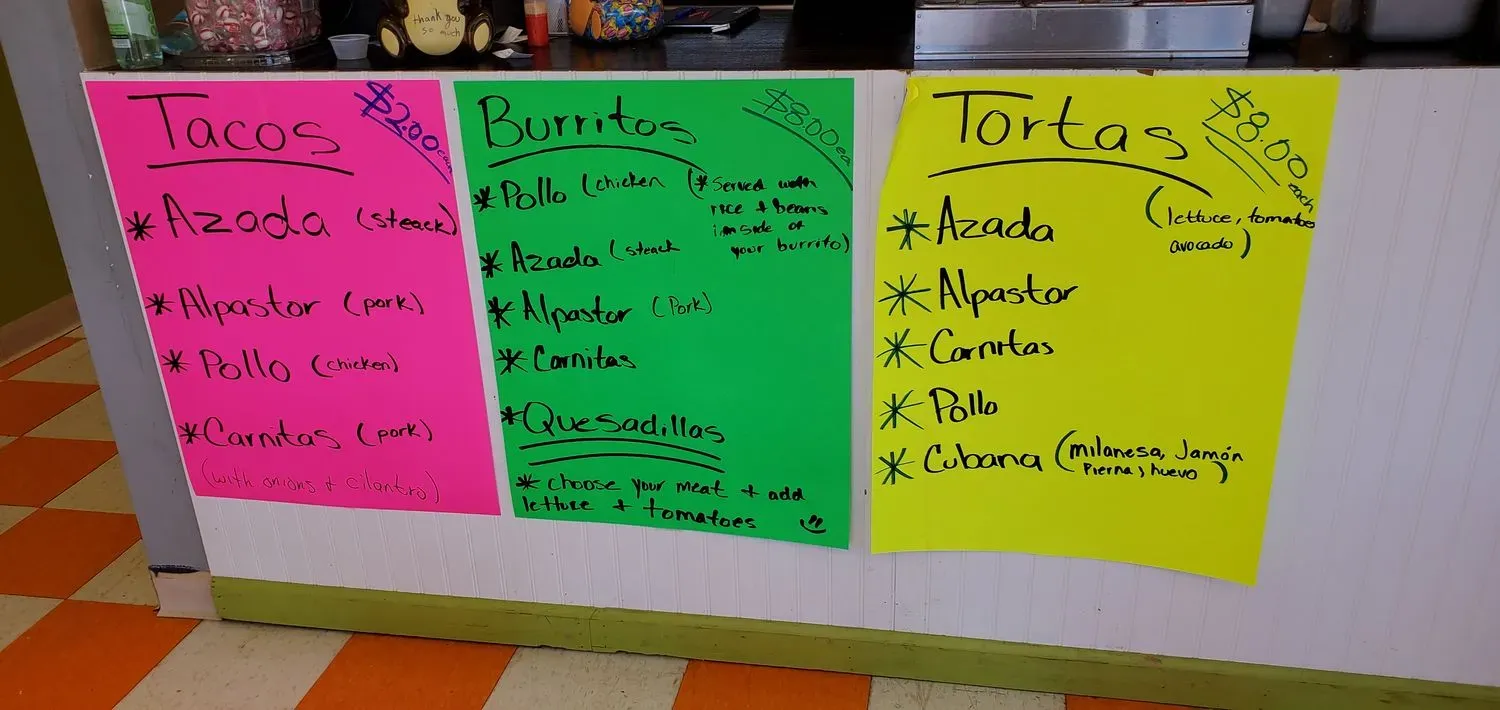 thank you
so much
Tacos
$2.00 each
* Azada (steack)
* Alpastor (pork)
* Pollo (chicken)
* Carnitas (pork)
(with onions + cilantro)
Burritos
$8.00 ea
* Pollo (chicken
(* Served with
rice + beans
inside of
your burrito)
* Azada (steack
* Alpastor (Pork)
* Carnitas
* Quesadillas
* choose your meat + add
lettuce + tomatoes
Tortas
$8.00 each
(lettuce, tomatoes
avocado)
* Azada
* Alpastor
* Carnitas
* Pollo
* Cubana (milanesa, Jamón
Pierna, huevo)